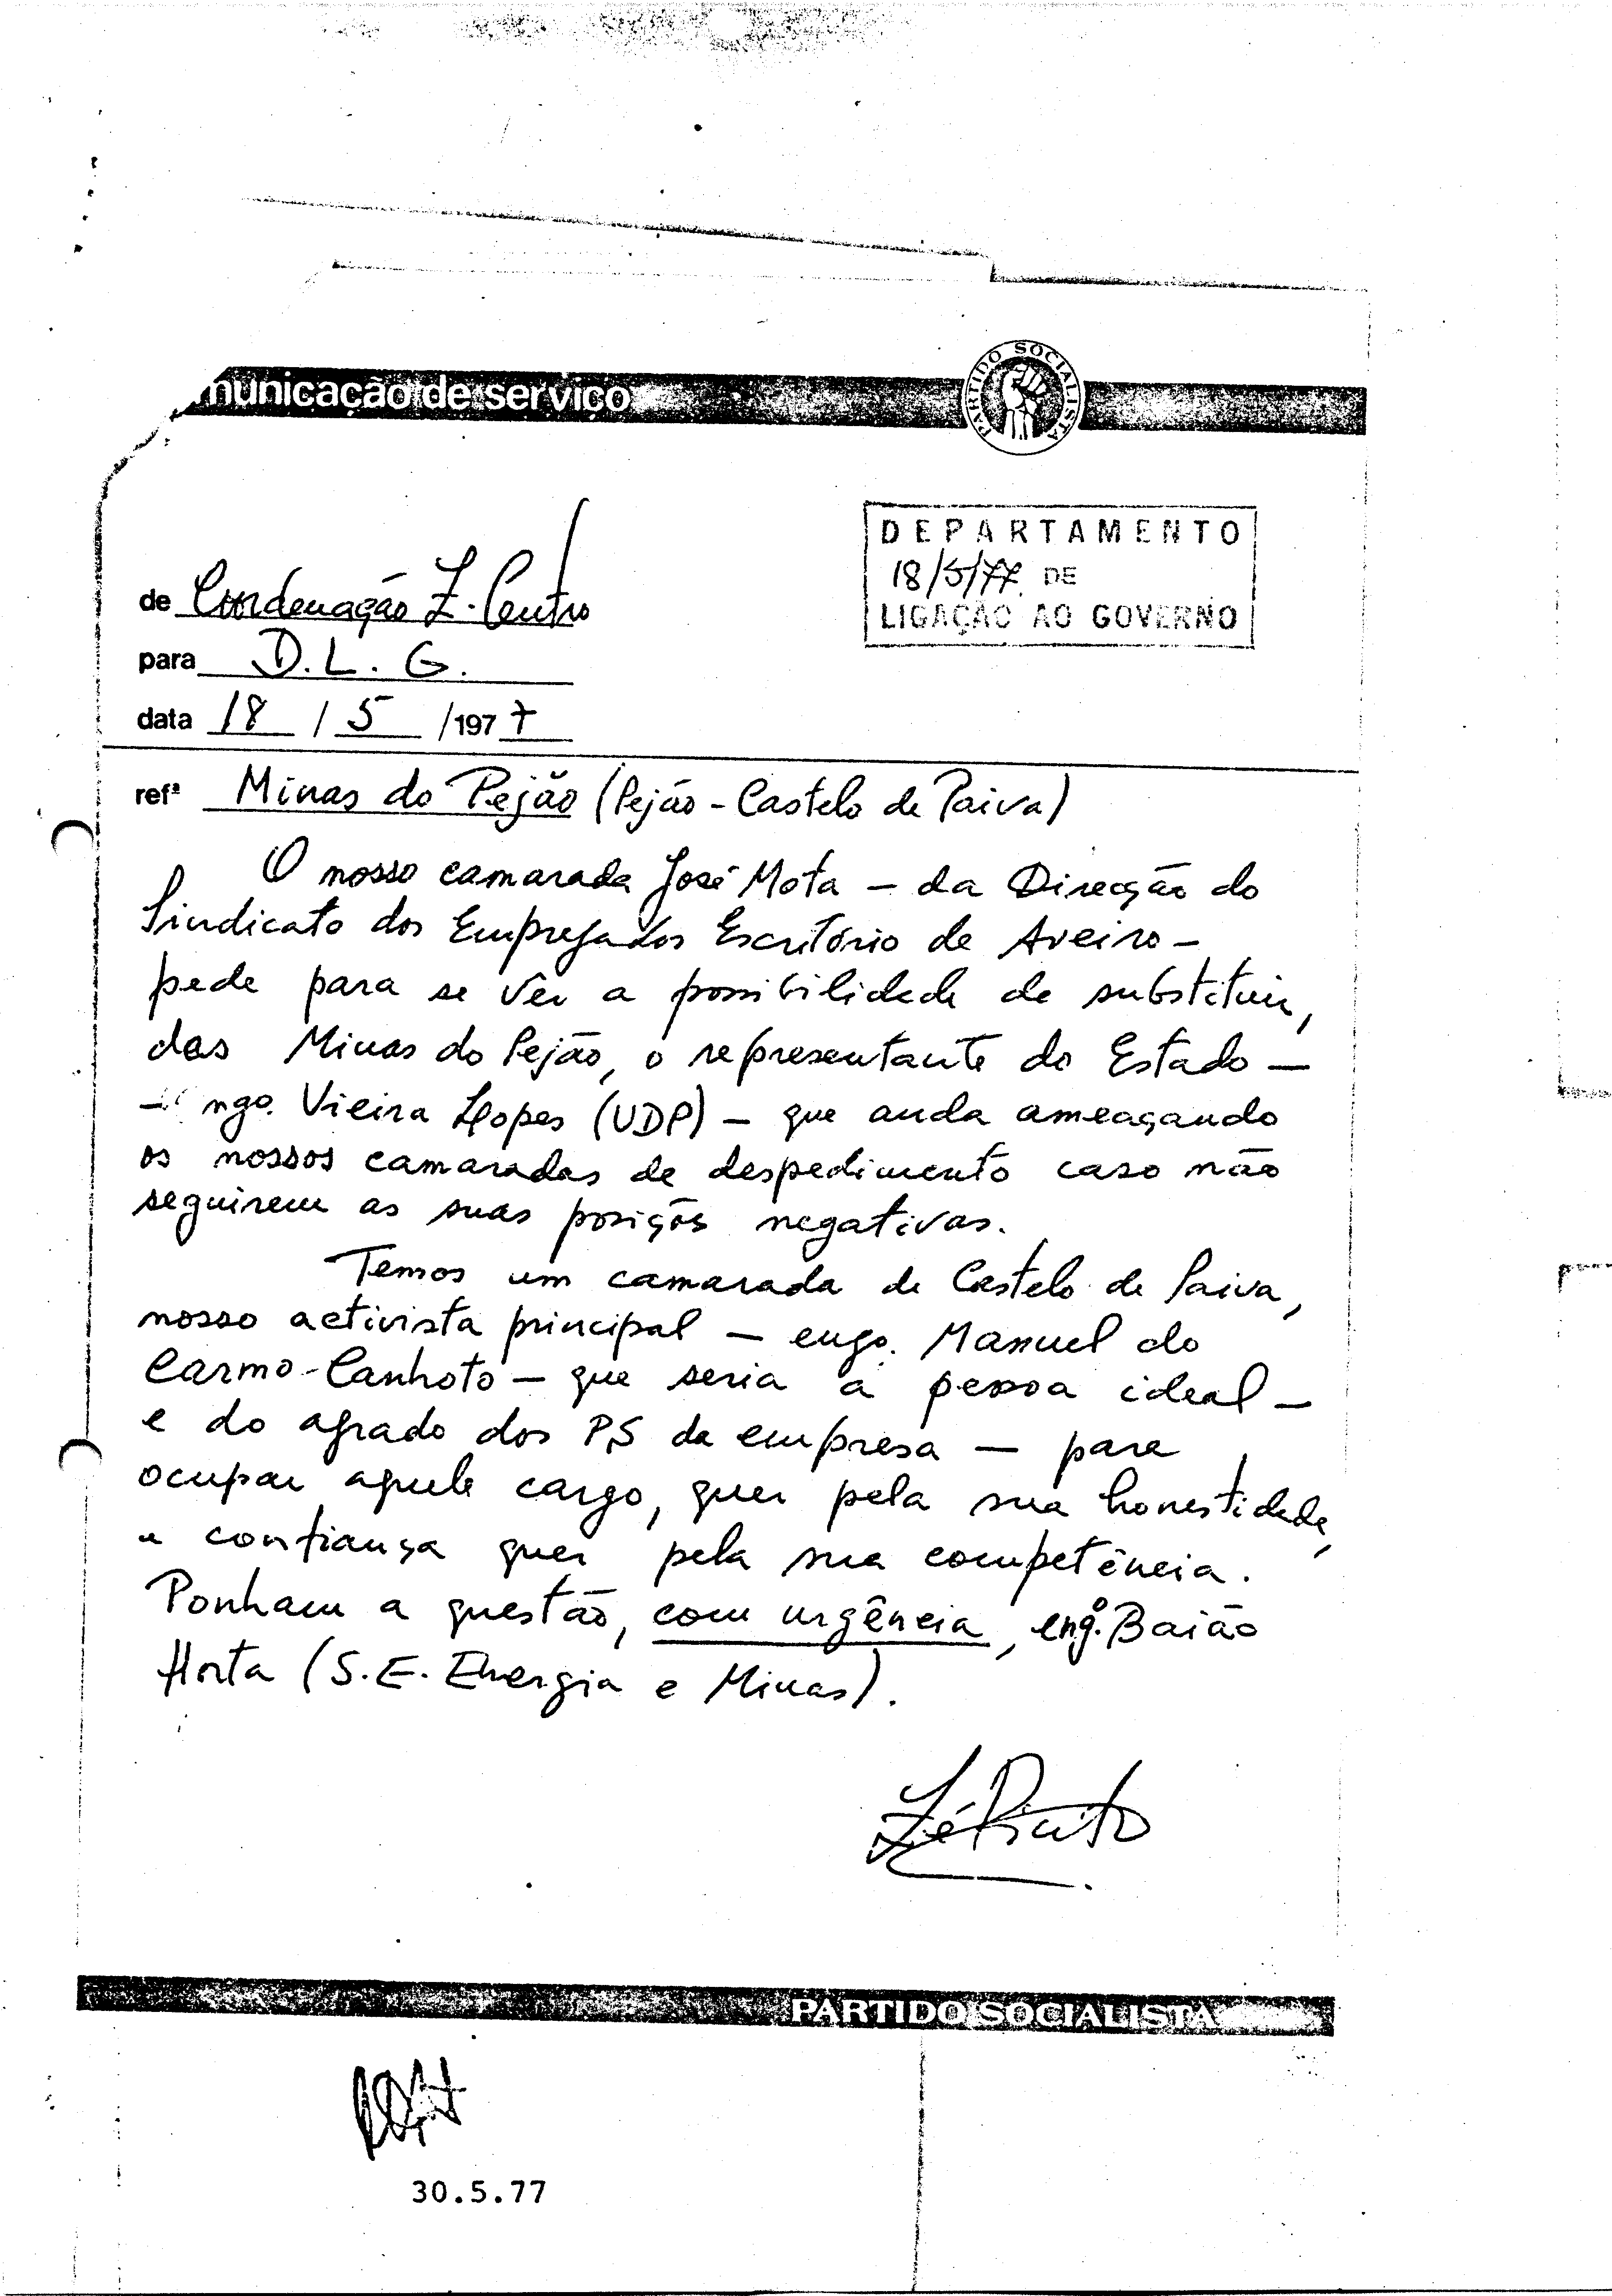 municação de serviço
PARTIDO SOCIALISTA
DEPARTAMENTO
18/5/77 DE
LIGAÇÃO AO GOVERNO
de Coordenação Z. Centro
para D.L.G.
data 18 / 5 /1977
refª Minas do Pejão (Pejão - Castelo de Paiva)
O nosso camarada José Mota - da Direcção do
Sindicato dos Empregados Escritório de Aveiro -
pede para se ver a possibilidade de substituir,
das Minas do Pejão, o representante do Estado -
- engo. Vieira Lopes (UDP) - que anda ameaçando
os nossos camaradas de despedimento caso não
seguirem as suas posições negativas.
Temos um camarada de Castelo de Paiva,
nosso activista principal - engo. Manuel do
Carmo-Canhoto - que seria a pessoa ideal -
e do agrado dos PS da empresa - para
ocupar aquele cargo, quer pela sua honestidade,
e confiança quer pela sua competência.
Ponham a questão, com urgência, engº. Baião
Horta (S.E. Energia e Minas).
Zé Pinto
PARTIDO SOCIALISTA
30.5.77